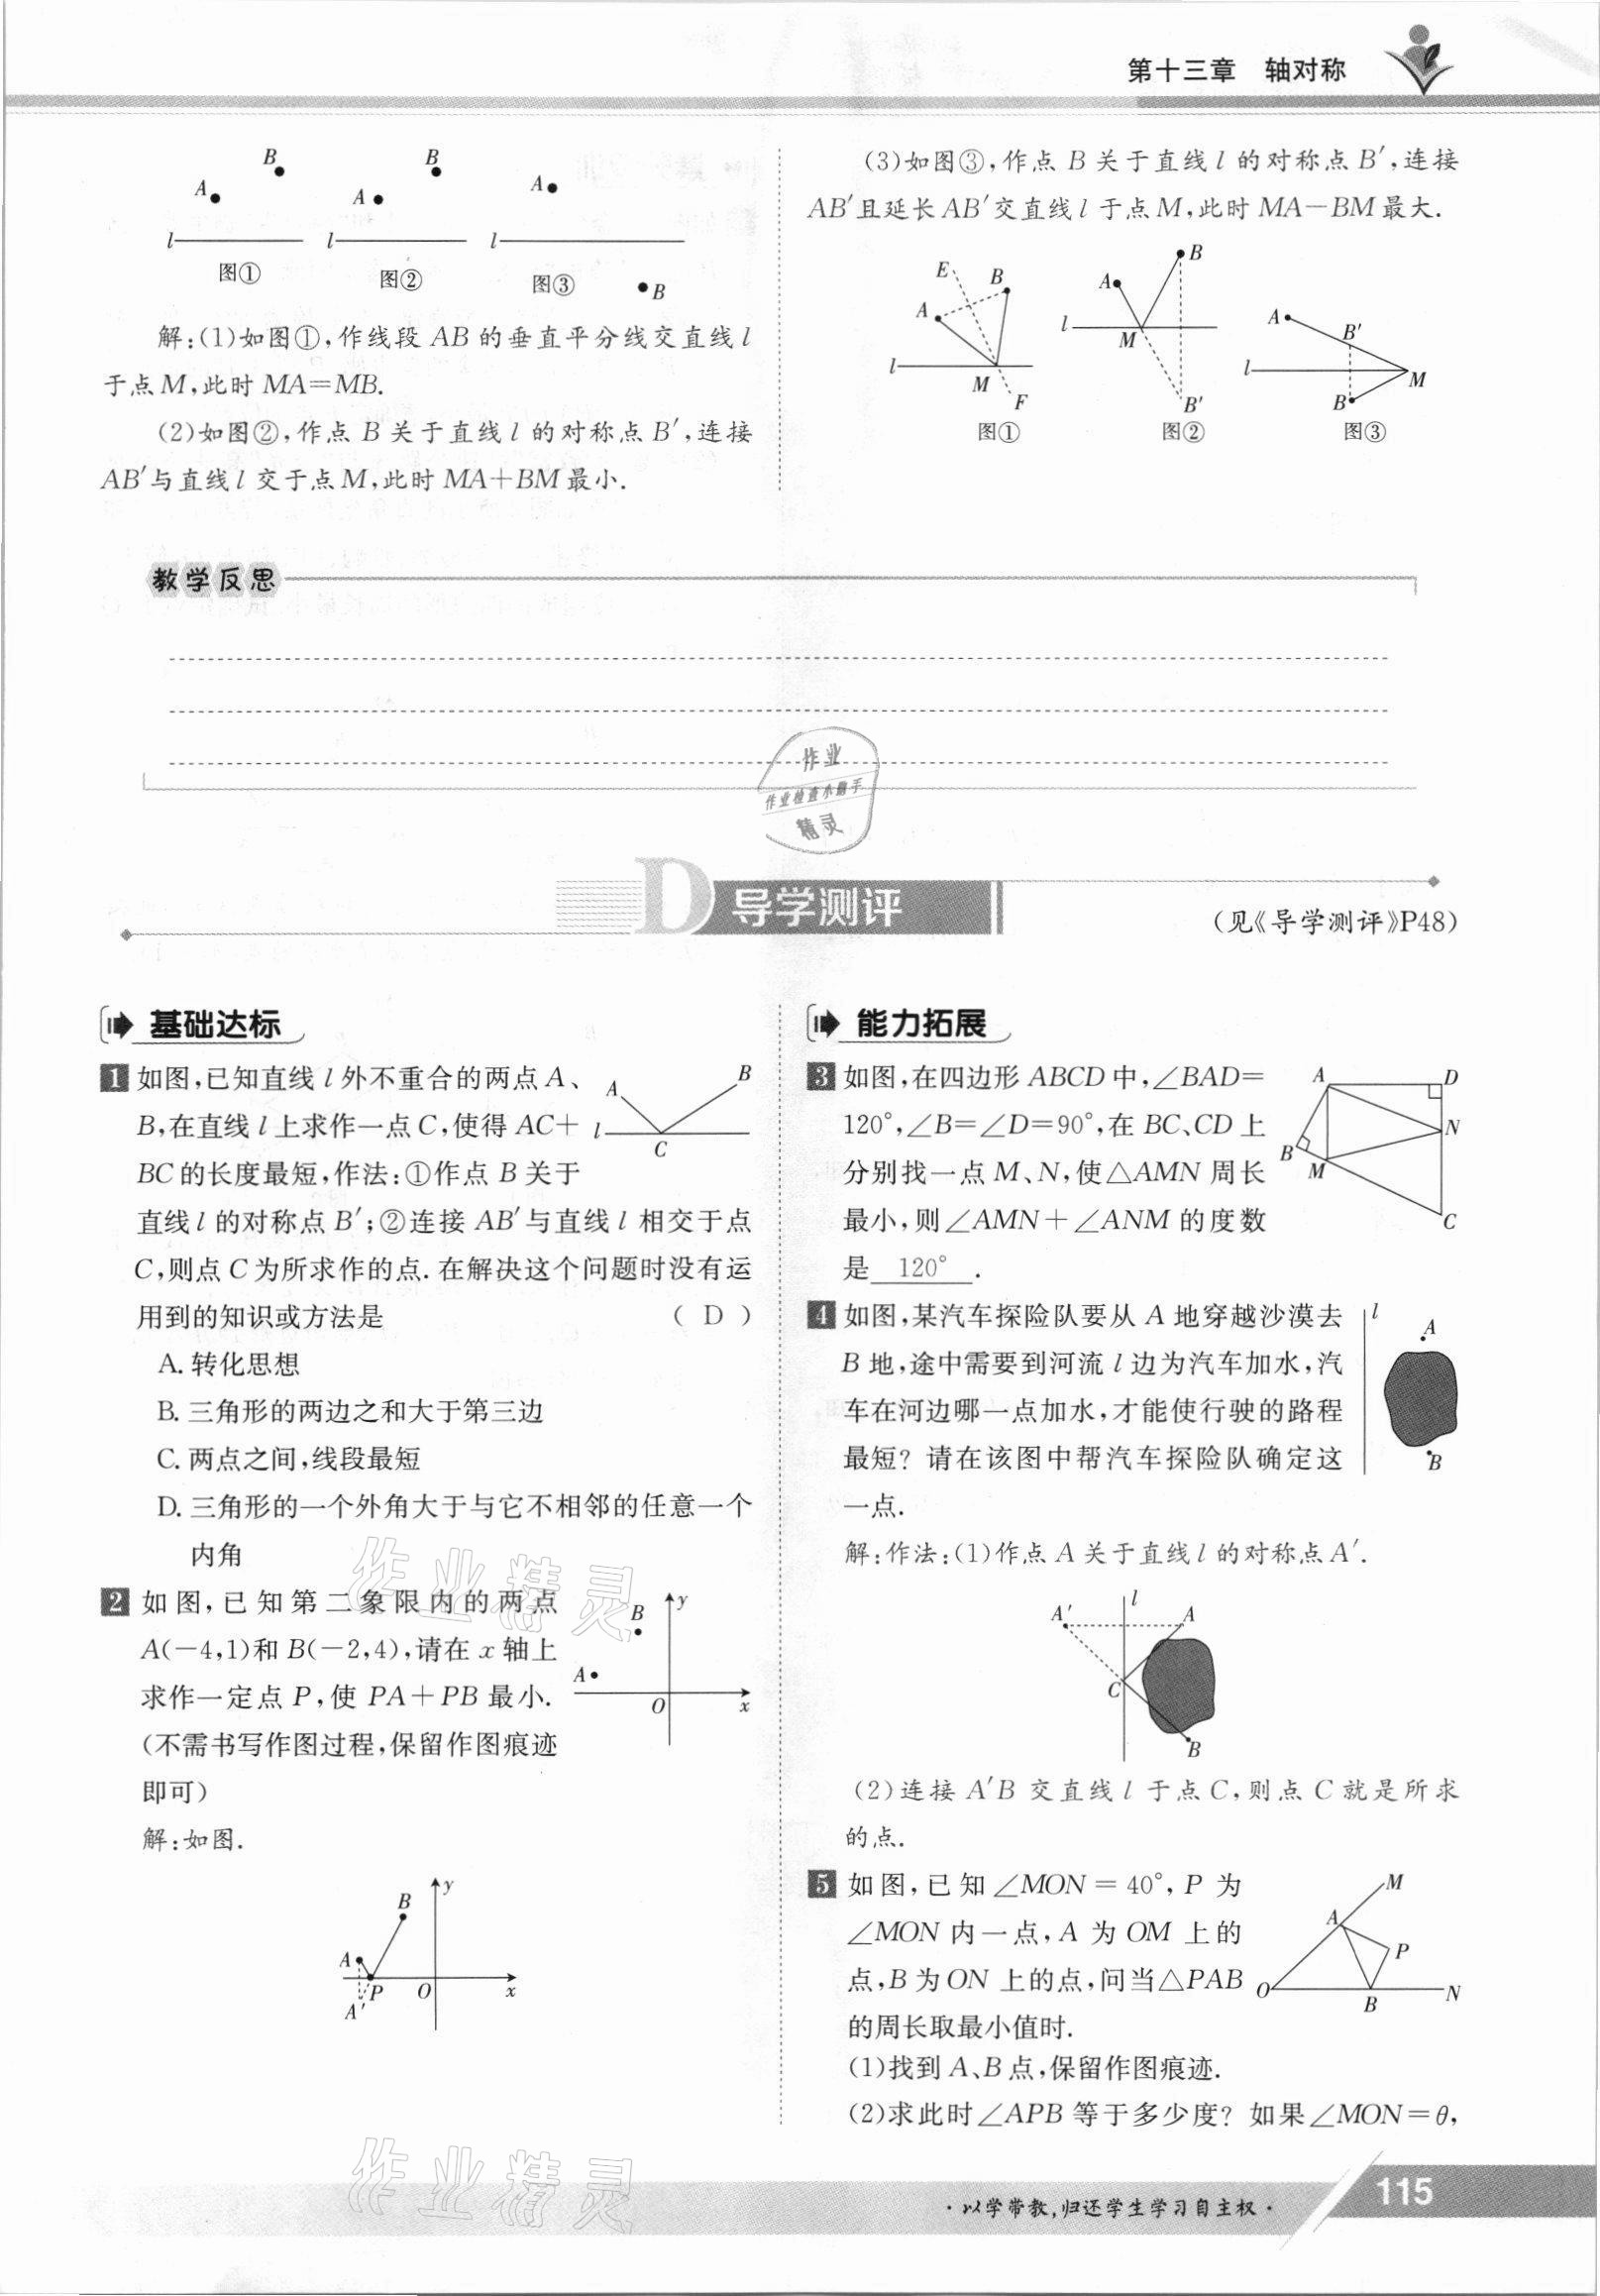 第十三章 轴对称
B
A
l
图①
B
A
l
图②
A
l
图③
B
解:(1)如图①,作线段 AB 的垂直平分线交直线 l
于点M,此时 MA=MB.
(2)如图②,作点 B 关于直线 l 的对称点 B′,连接
AB′与直线 l 交于点M,此时 MA+BM 最小.
(3)如图③,作点 B 关于直线 l 的对称点 B′,连接
AB′且延长 AB′交直线 l 于点 M,此时 MA-BM 最大.
E
B
A
l
M
F
图①
B
A
l
M
B′
图②
A
B′
l
M
B
图③
教学反思
作业
作业检查小助手
精灵
D 导学测评
(见《导学测评》P48)
基础达标
1 如图,已知直线 l 外不重合的两点 A、
B,在直线 l 上求作一点 C,使得 AC+
BC 的长度最短,作法:①作点 B 关于
直线 l 的对称点 B′;②连接 AB′与直线 l 相交于点
C,则点 C 为所求作的点.在解决这个问题时没有运
用到的知识或方法是 ( D )
A
B
l
C
A. 转化思想
B. 三角形的两边之和大于第三边
C. 两点之间,线段最短
D. 三角形的一个外角大于与它不相邻的任意一个
内角
2 如图,已知第二象限内的两点
A(-4,1)和 B(-2,4),请在 x 轴上
求作一定点 P,使 PA+PB 最小.
(不需书写作图过程,保留作图痕迹
即可)
B
y
A
O
x
解:如图.
y
B
A
P
O
x
A′
能力拓展
3 如图,在四边形 ABCD 中,∠BAD=
120°,∠B=∠D=90°,在 BC、CD 上
分别找一点 M、N,使△AMN 周长
最小,则∠AMN+∠ANM 的度数
是 120° .
A
D
N
B
M
C
4 如图,某汽车探险队要从 A 地穿越沙漠去
B 地,途中需要到河流 l 边为汽车加水,汽
车在河边哪一点加水,才能使行驶的路程
最短? 请在该图中帮汽车探险队确定这
一点.
l
A
B
解:作法:(1)作点 A 关于直线 l 的对称点 A′.
l
A′
A
C
B
(2)连接 A′B 交直线 l 于点 C,则点 C 就是所求
的点.
5 如图,已知∠MON=40°,P 为
∠MON 内一点,A 为 OM 上的
点,B 为 ON 上的点,问当△PAB
的周长取最小值时.
M
A
P
O
B
N
(1)找到 A、B 点,保留作图痕迹.
(2)求此时∠APB 等于多少度? 如果∠MON=θ,
作业精灵
作业精灵
·以学带教,归还学生学习自主权·
115